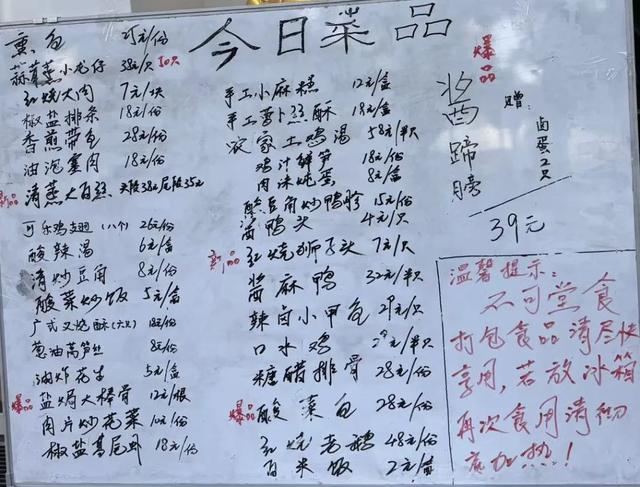 今日菜品
熏鱼 25元/份
蒜蓉蒸小龙仔 38元/只 10只
红烧大肉 7元/块
椒盐排条 18元/份
香煎带鱼 28元/份
油泡塞肉 18元/份
新品 清蒸大白丝 头段38元尾段35元
可乐鸡翅(八个) 26元/份
酸辣汤 6元/盒
清炒豆角 8元/份
酸菜炒饭 5元/盒
广式叉烧酥(六只) 18元/份
葱油莴笋丝 8元/份
油炸花生 5元/盒
爆品 盐焗大棒骨 12元/根
肉片炒花菜 10元/份
椒盐基尾虾 18元/份
手工小麻糕 12元/盒
手工萝卜丝酥 18元/盒
农家土鸡汤 58元/半只
鸡汁鲜笋 18元/份
肉沫炖蛋 8元/盒
酸豆角炒鸭胗 15元/份
卤鸭头 4元/只
新品 红烧狮子头 7元/只
酱麻鸭 32元/半只
辣卤小甲鱼 29元/只
口水鸡 29元/半只
糖醋排骨 28元/份
爆品 酸菜鱼 28元/份
红烧老鹅 48元/份
白米饭 2元/盒
爆品
酱蹄膀
赠:卤蛋2只
39元
温馨提示:
不可堂食
打包食品请尽快
享用,若放冰箱
再次食用请彻
底加热!